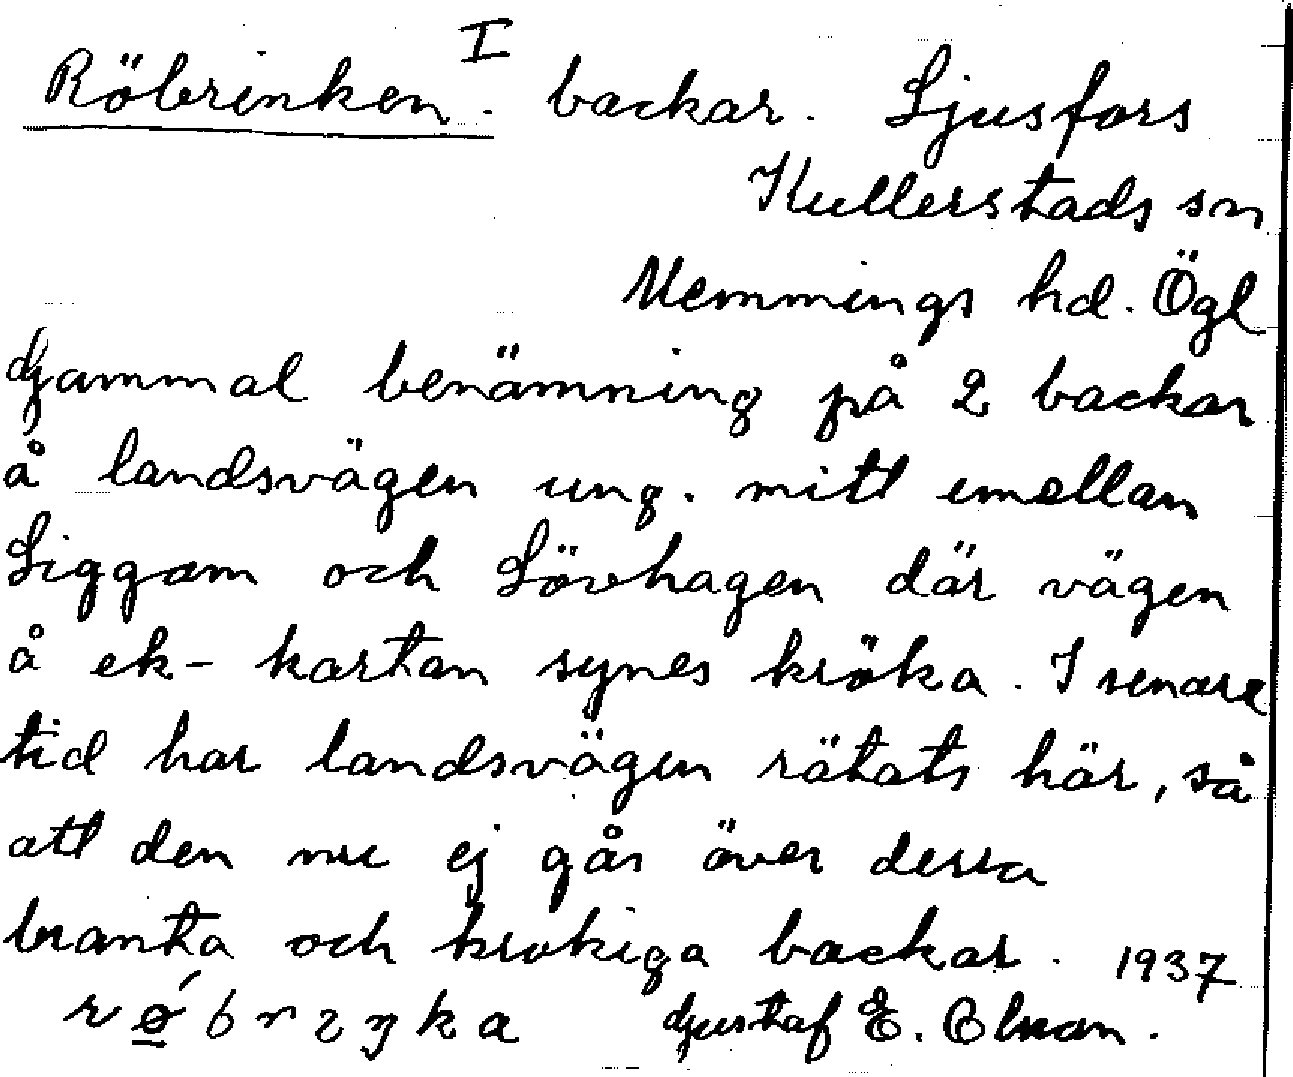 Röbrinken. I backar. Ljusfors
Kullerstads sn
Memmings hd. Ögl
Gammal benämning på 2 backar
å landsvägen ung. mitt emellan
Liggam och Lövhagen där vägen
å ek-kartan synes kröka. I senare
tid har landsvägen rätats här, så
att den nu ej går över dessa
branta och krokiga backar. 1937
Gustaf E.